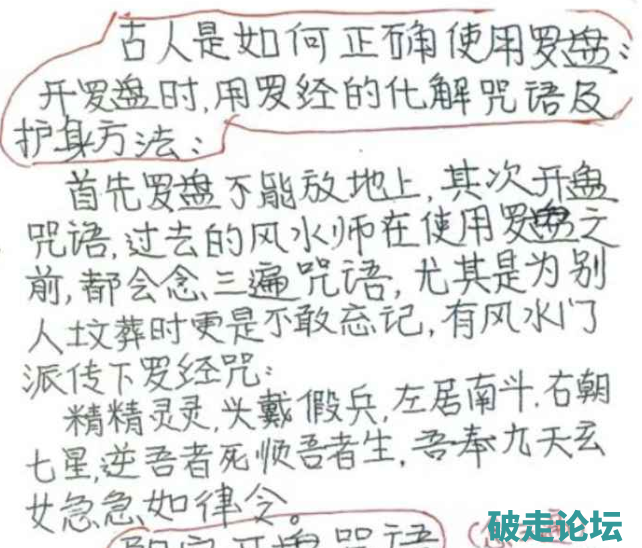 古人是如何正确使用罗盘:
开罗盘时,用罗经的化解咒语及
护身方法:
首先罗盘不能放地上,其次开盘
咒语,过去的风水师在使用罗盘之
前,都会念三遍咒语,尤其是为别
人坟葬时更是不敢忘记,有风水门
派传下罗经咒:
精精灵灵,头戴假兵,左居南斗.右朝
七星,逆吾者死顺吾者生,吾奉九天玄
女急急如律令。
开盘咒语
破走论坛